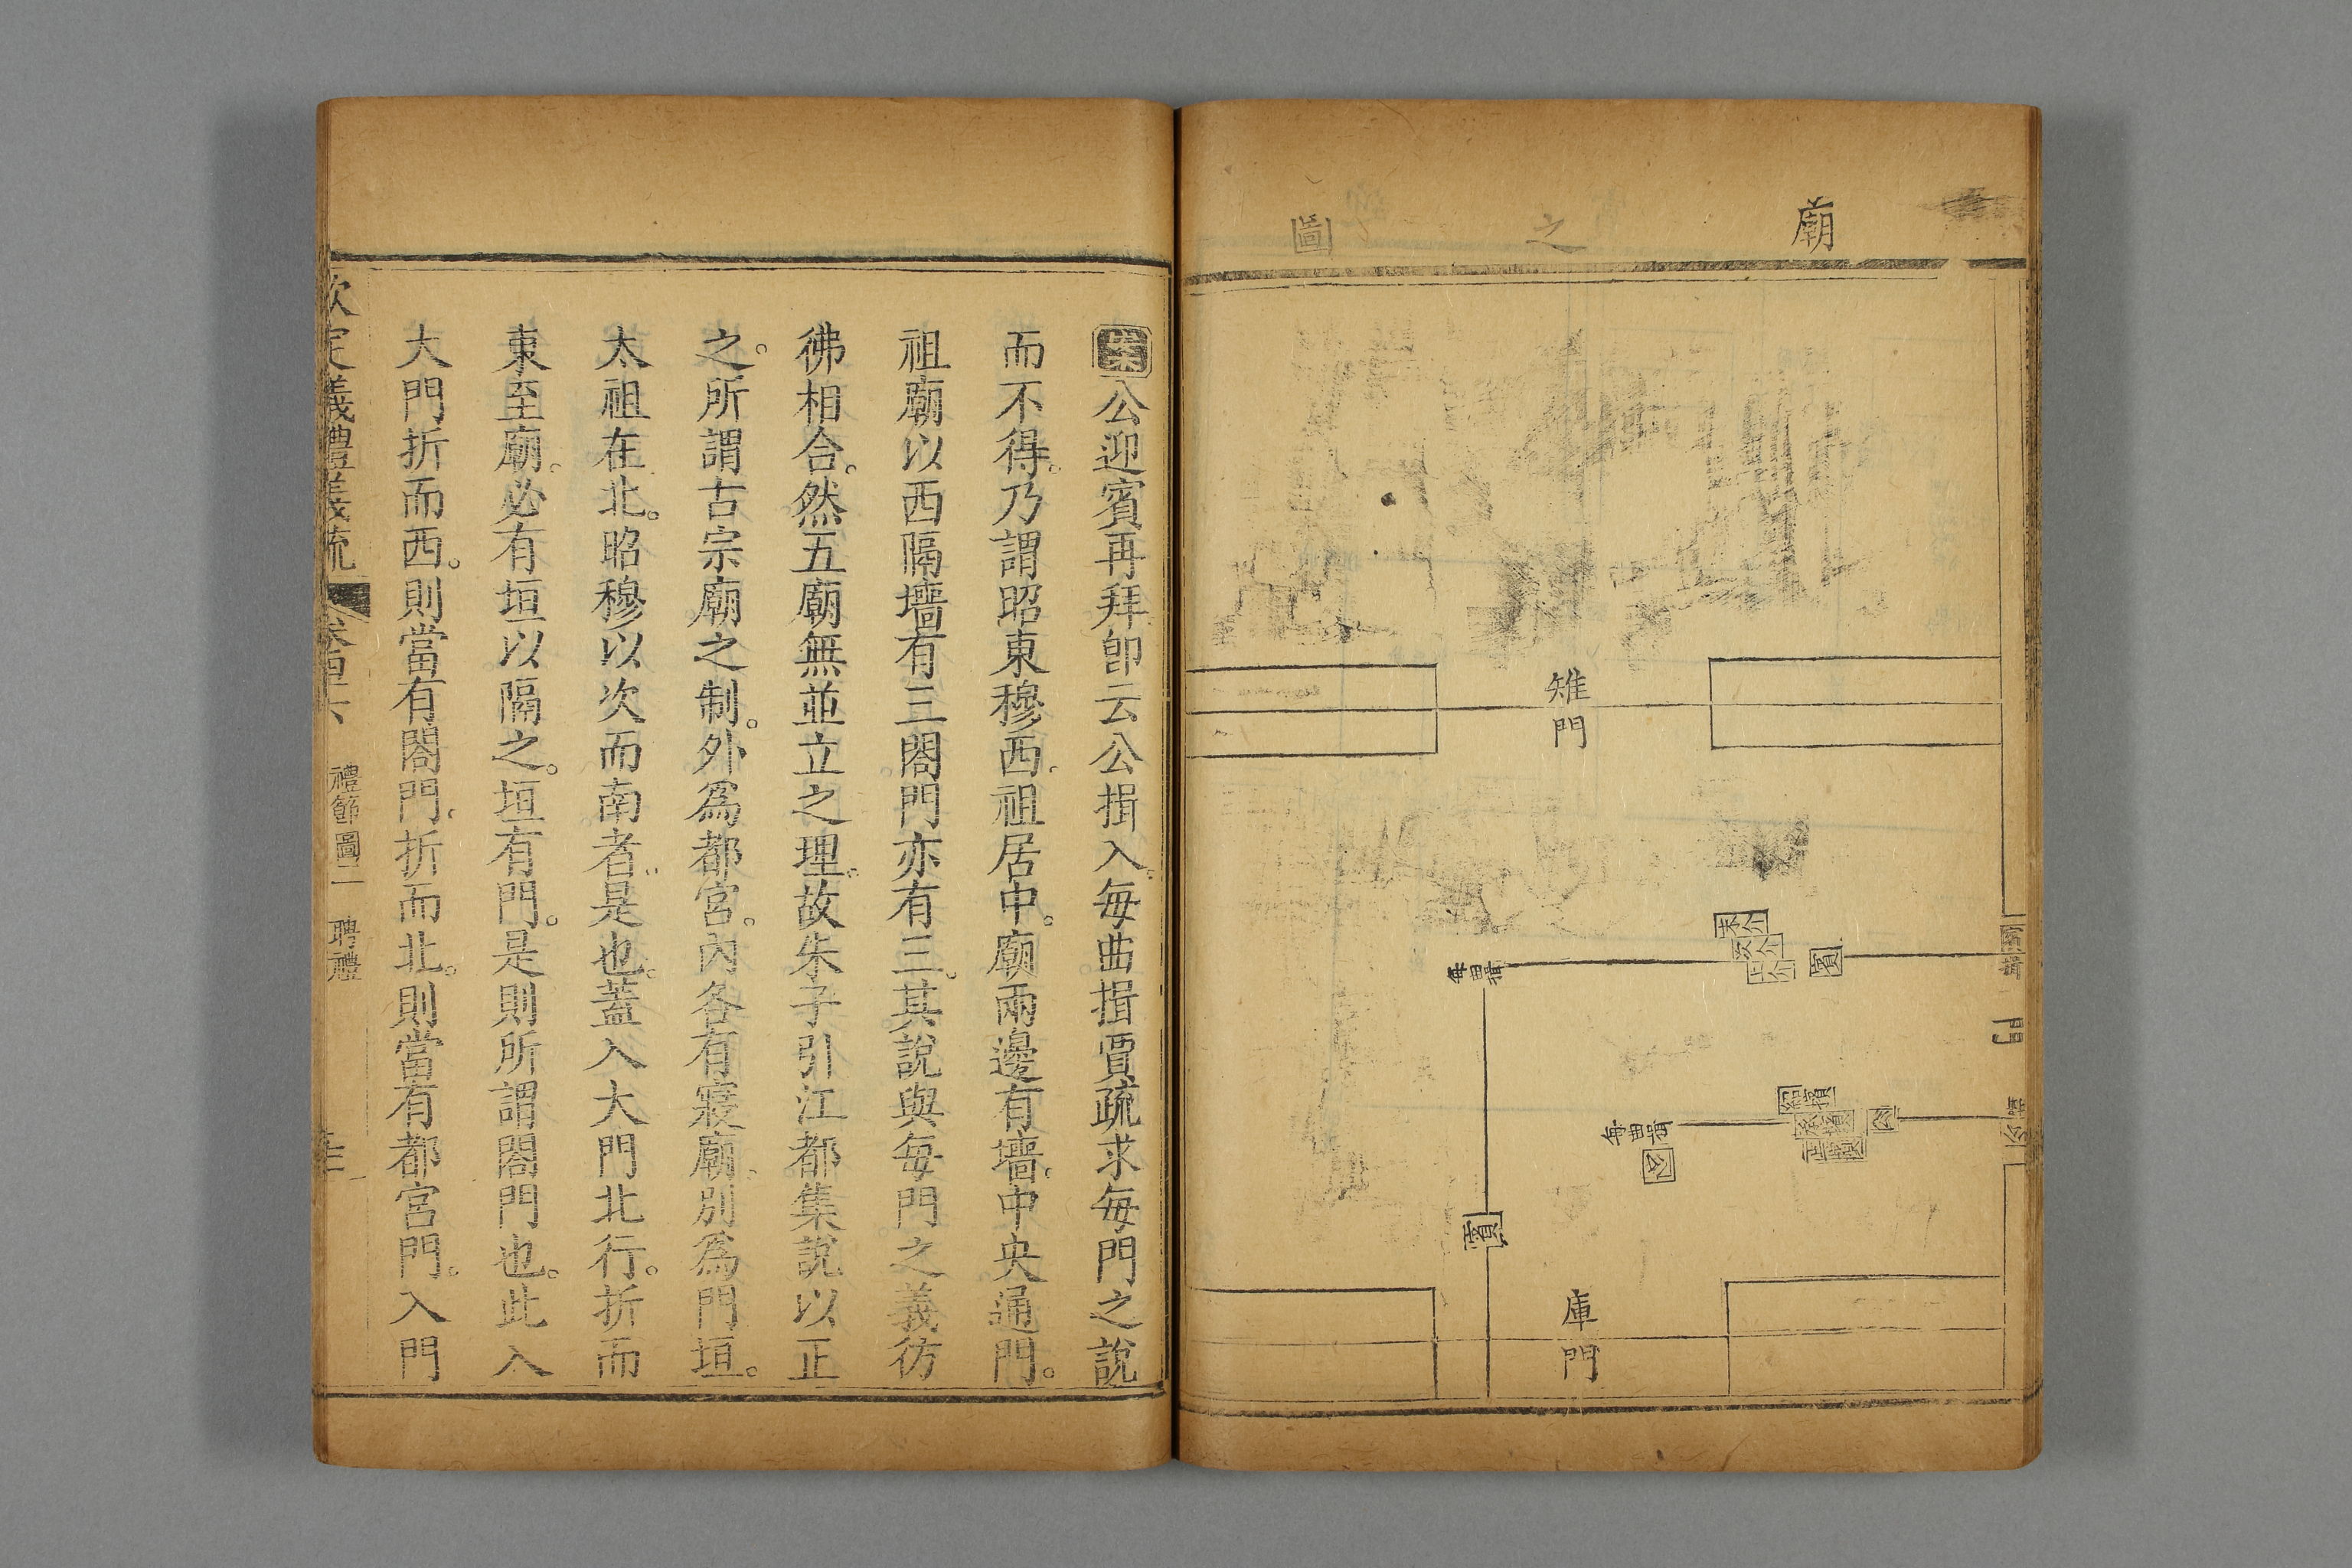 廟之圖
雉門
末介
次介
上介
賓
每曲揖
門
紹擯
承擯
上擯
公
每曲揖
公
賓
庫門
案公迎賓再拜卽云公揖入。每曲揖賈疏求每門之說
而不得。乃謂昭東穆西。祖居中。廟兩邊有墻。中央通門。
祖廟以西隔墻有三閤門亦有三。其說與每門之義彷
彿相合。然五廟無並立之理。故朱子引江都集說以正
之。所謂古宗廟之制。外爲都宮。內各有寢廟。別爲門垣。
太祖在北。昭穆以次而南者。是也。蓋入大門北行。折而
東至廟。必有垣以隔之。垣有門。是則所謂閤門也。此入
大門折而西。則當有閤門。折而北。則當有都宮門。入門
欽定義禮義疏
禮節圖二
聘禮